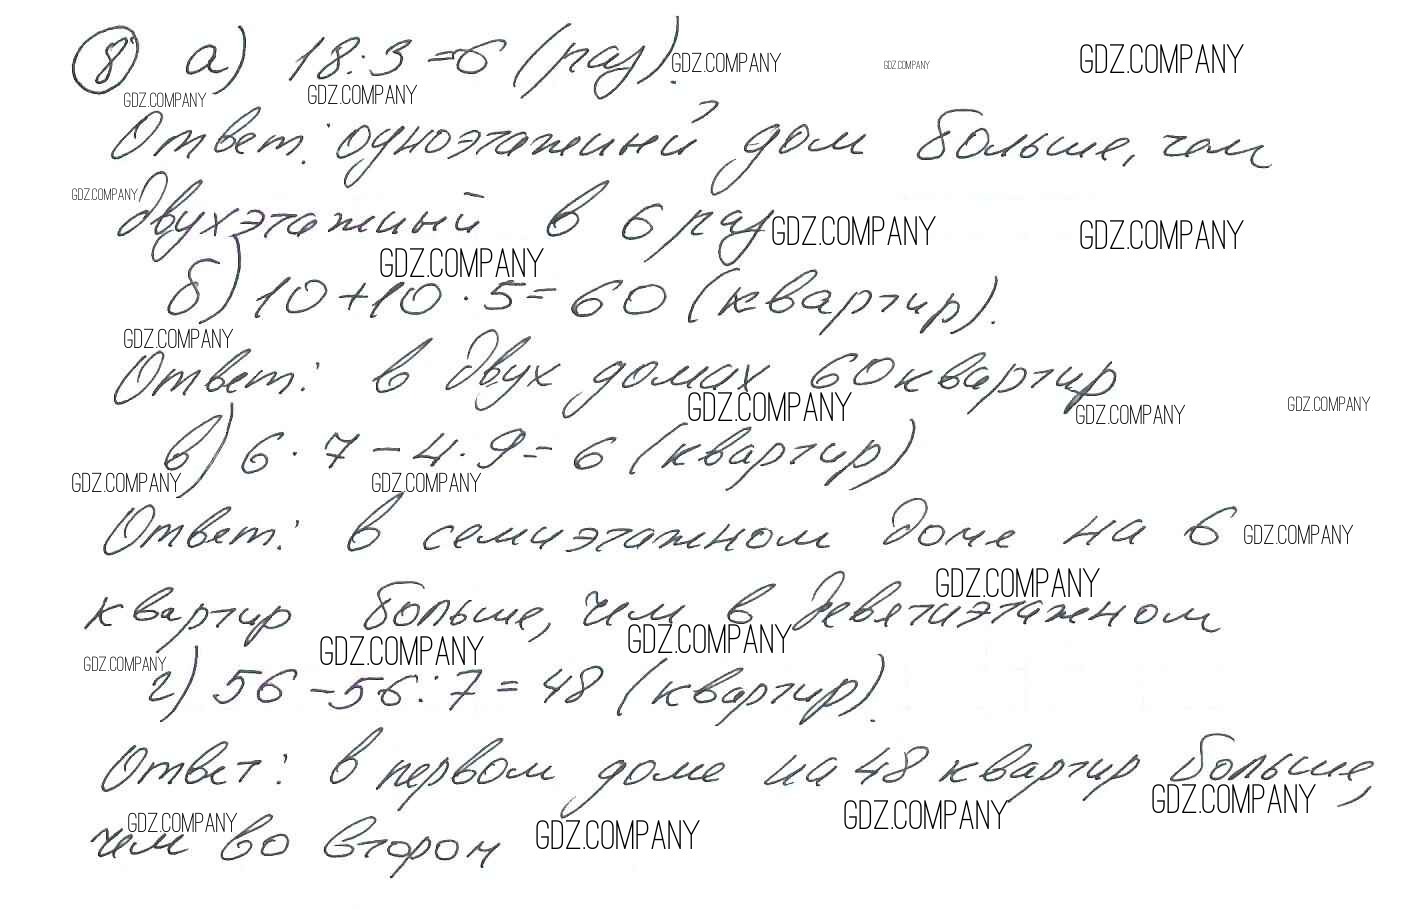 8 а) 18:3=6 (раз). GDZ.COMPANY GDZ.COMPANY GDZ.COMPANY
GDZ.COMPANY GDZ.COMPANY
Ответ: одноэтажный дом больше, чем
GDZ.COMPANY двухэтажный в 6 раз GDZ.COMPANY GDZ.COMPANY
GDZ.COMPANY
б) 10+10·5=60 (квартир).
GDZ.COMPANY
Ответ: в двух домах 60 квартир
GDZ.COMPANY GDZ.COMPANY GDZ.COMPANY
в) 6·7-4·9=6 (квартир)
GDZ.COMPANY GDZ.COMPANY
Ответ: в семиэтажном доме на 6 GDZ.COMPANY
GDZ.COMPANY
квартир больше, чем в девятиэтажном
GDZ.COMPANY GDZ.COMPANY
GDZ.COMPANY
г) 56-56:7=48 (квартир).
Ответ: в первом доме на 48 квартир больше,
GDZ.COMPANY GDZ.COMPANY GDZ.COMPANY
чем во втором GDZ.COMPANY